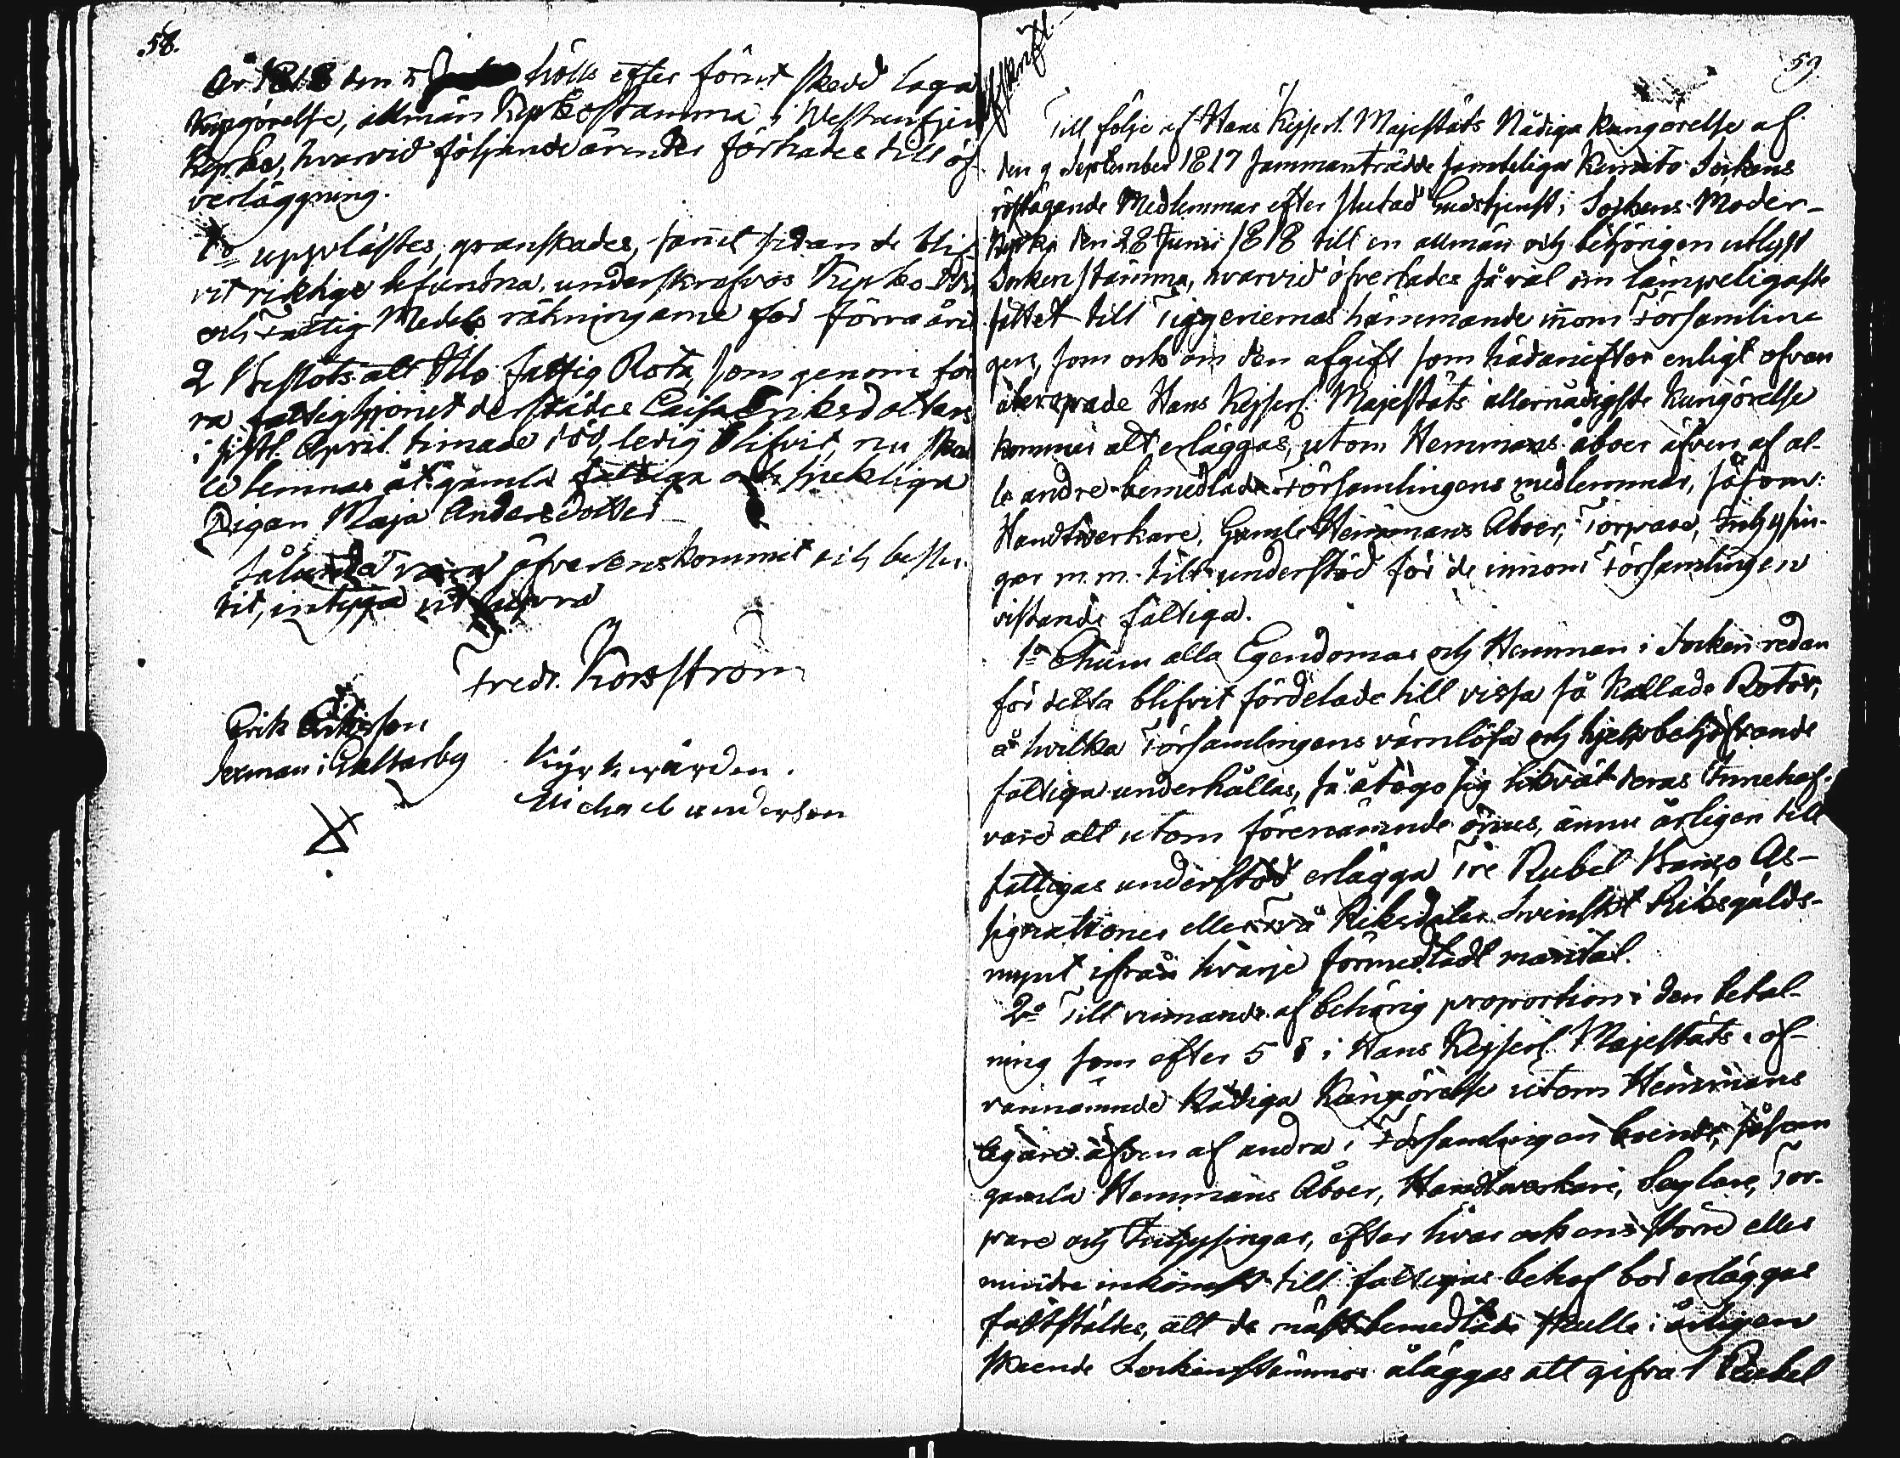 58.
År 1818 den 5 Julii hölls efter förut skedd laga
Kungörelse, allmän Kyrkostämma i Westanfjerd
Kyrka, hvarvid följande ärender förehades till öf-
verläggning.
1o upplästes, granskades, samt sedan de blif-
vit riktige befundna, underskrefvos Kyrko
och Fattig Medels räkningarne för förra året
2 Beslöts att Illo fattig Rota, som genom för
ra fattighjonet derstädes Caisa Eriksdotters
i sistl. April timade död, ledig blifvit, nu skul
le lemnas åt gamla fattiga och sjukliga
Pigan Maja Andersdotter
Sålunda vara öfverenskommit och beslu-
tit, intyga ut supra
Fredr. Korsström
Erik Eriksson
Sexman i Galtarby
Kyrkovärden.
Michael anderson
59
Afskrift.
Till följe af Hans Kejserl. Majestäts Nådiga kungörelse af
den 9 September 1817 sammanträdde samteliga Kimito Sockens
röstägande Medlemmar efter slutad Gudstjenst i Sockens Moder-
kyrka den 28 Junii 1818 till en allmän och behörigen utlyst
Sockenstämma, hvarvid öfverlades så väl om lämpeligaste
sättet till Tiggeriernas hämmande inom Församlin-
gen, som ock om den afgift som hädanefter enligt ofvan
åberopade Hans Kejserl. Majestäts allernådigste Kungörelse
kommer att erläggas, utom Hemmans åboer äfven af al-
le andre bemedlade Församlingens medlemmar, såsom:
Handtwerkare, Gamle Hemmans Aboer, Torpare, Inhysin-
gar m.m. till understöd för de innom Församlingen
vistande fattiga.
1o Ehuru alla Egendomar och Hemman i Socken redan
för detta blifvit fördelade till vissa så kallade Rotor,
å hvilka Församlingens värnlösa och hjelpbehöfvande
fattiga underhållas, så åtogo sig likväl deras Innehaf-
vare att utom förenämnde onus, ännu årligen till
fattigas understöd erlägga Tre Rubel Banco As-
signationer eller två Riksdaler Svenskt Riksgälds-
mynt ifrån hvarje förmedladt mantal.
2o Till vinnande af behörig proportion i den betal-
ning som efter 5 § i Hans Kejserl. Majestäts of-
vannämnde Nådiga Kungörelse utom Hemmans
Egare äfven af andra i Församlingen boende, såsom
gamla Hemmans Åboer, Handtwerkare, Seglare, Tor-
pare och Inhysingar, efter hvar och ens större eller
mindre inkomst till fattigas behof bör erläggas
fastställdes, att de mäst bemedlade skulle i årligen
skeende Sockenstämmor åläggas att gifva 1 Rubel